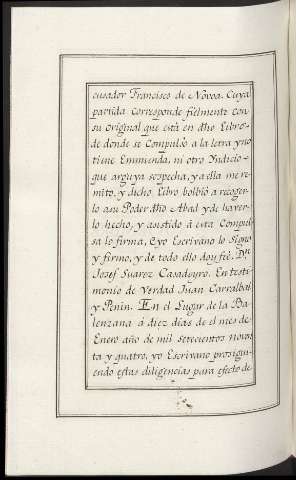 cusador Francisco de Nóvoa. Cuya
partida corresponde fielmente con
su original que está en dho Libro
de donde se Compulso a la letra y no
tiene Enmienda, ni otro Yndicio
que arguya sospecha, y a ella me re-
mito. y dicho Libro bolbió a recoger-
lo a su Poder dho Abad y de haver-
lo hecho, y asistido á esta Compul
sa lo firma, E yo Escrivano lo Signo
y firmo, y de todo ello doy fié. Dn.
Josef Suarez Casadoyro. En testi-
monio de Verdad Juan Carvalbal
y Pinin. En el Lugar de la Ba-
lenzana á diez días de el mes de
Enero año de mil setecientos noven
ta y quatro, yo Escrivano prosigui-
endo estas diligencias para efecto de